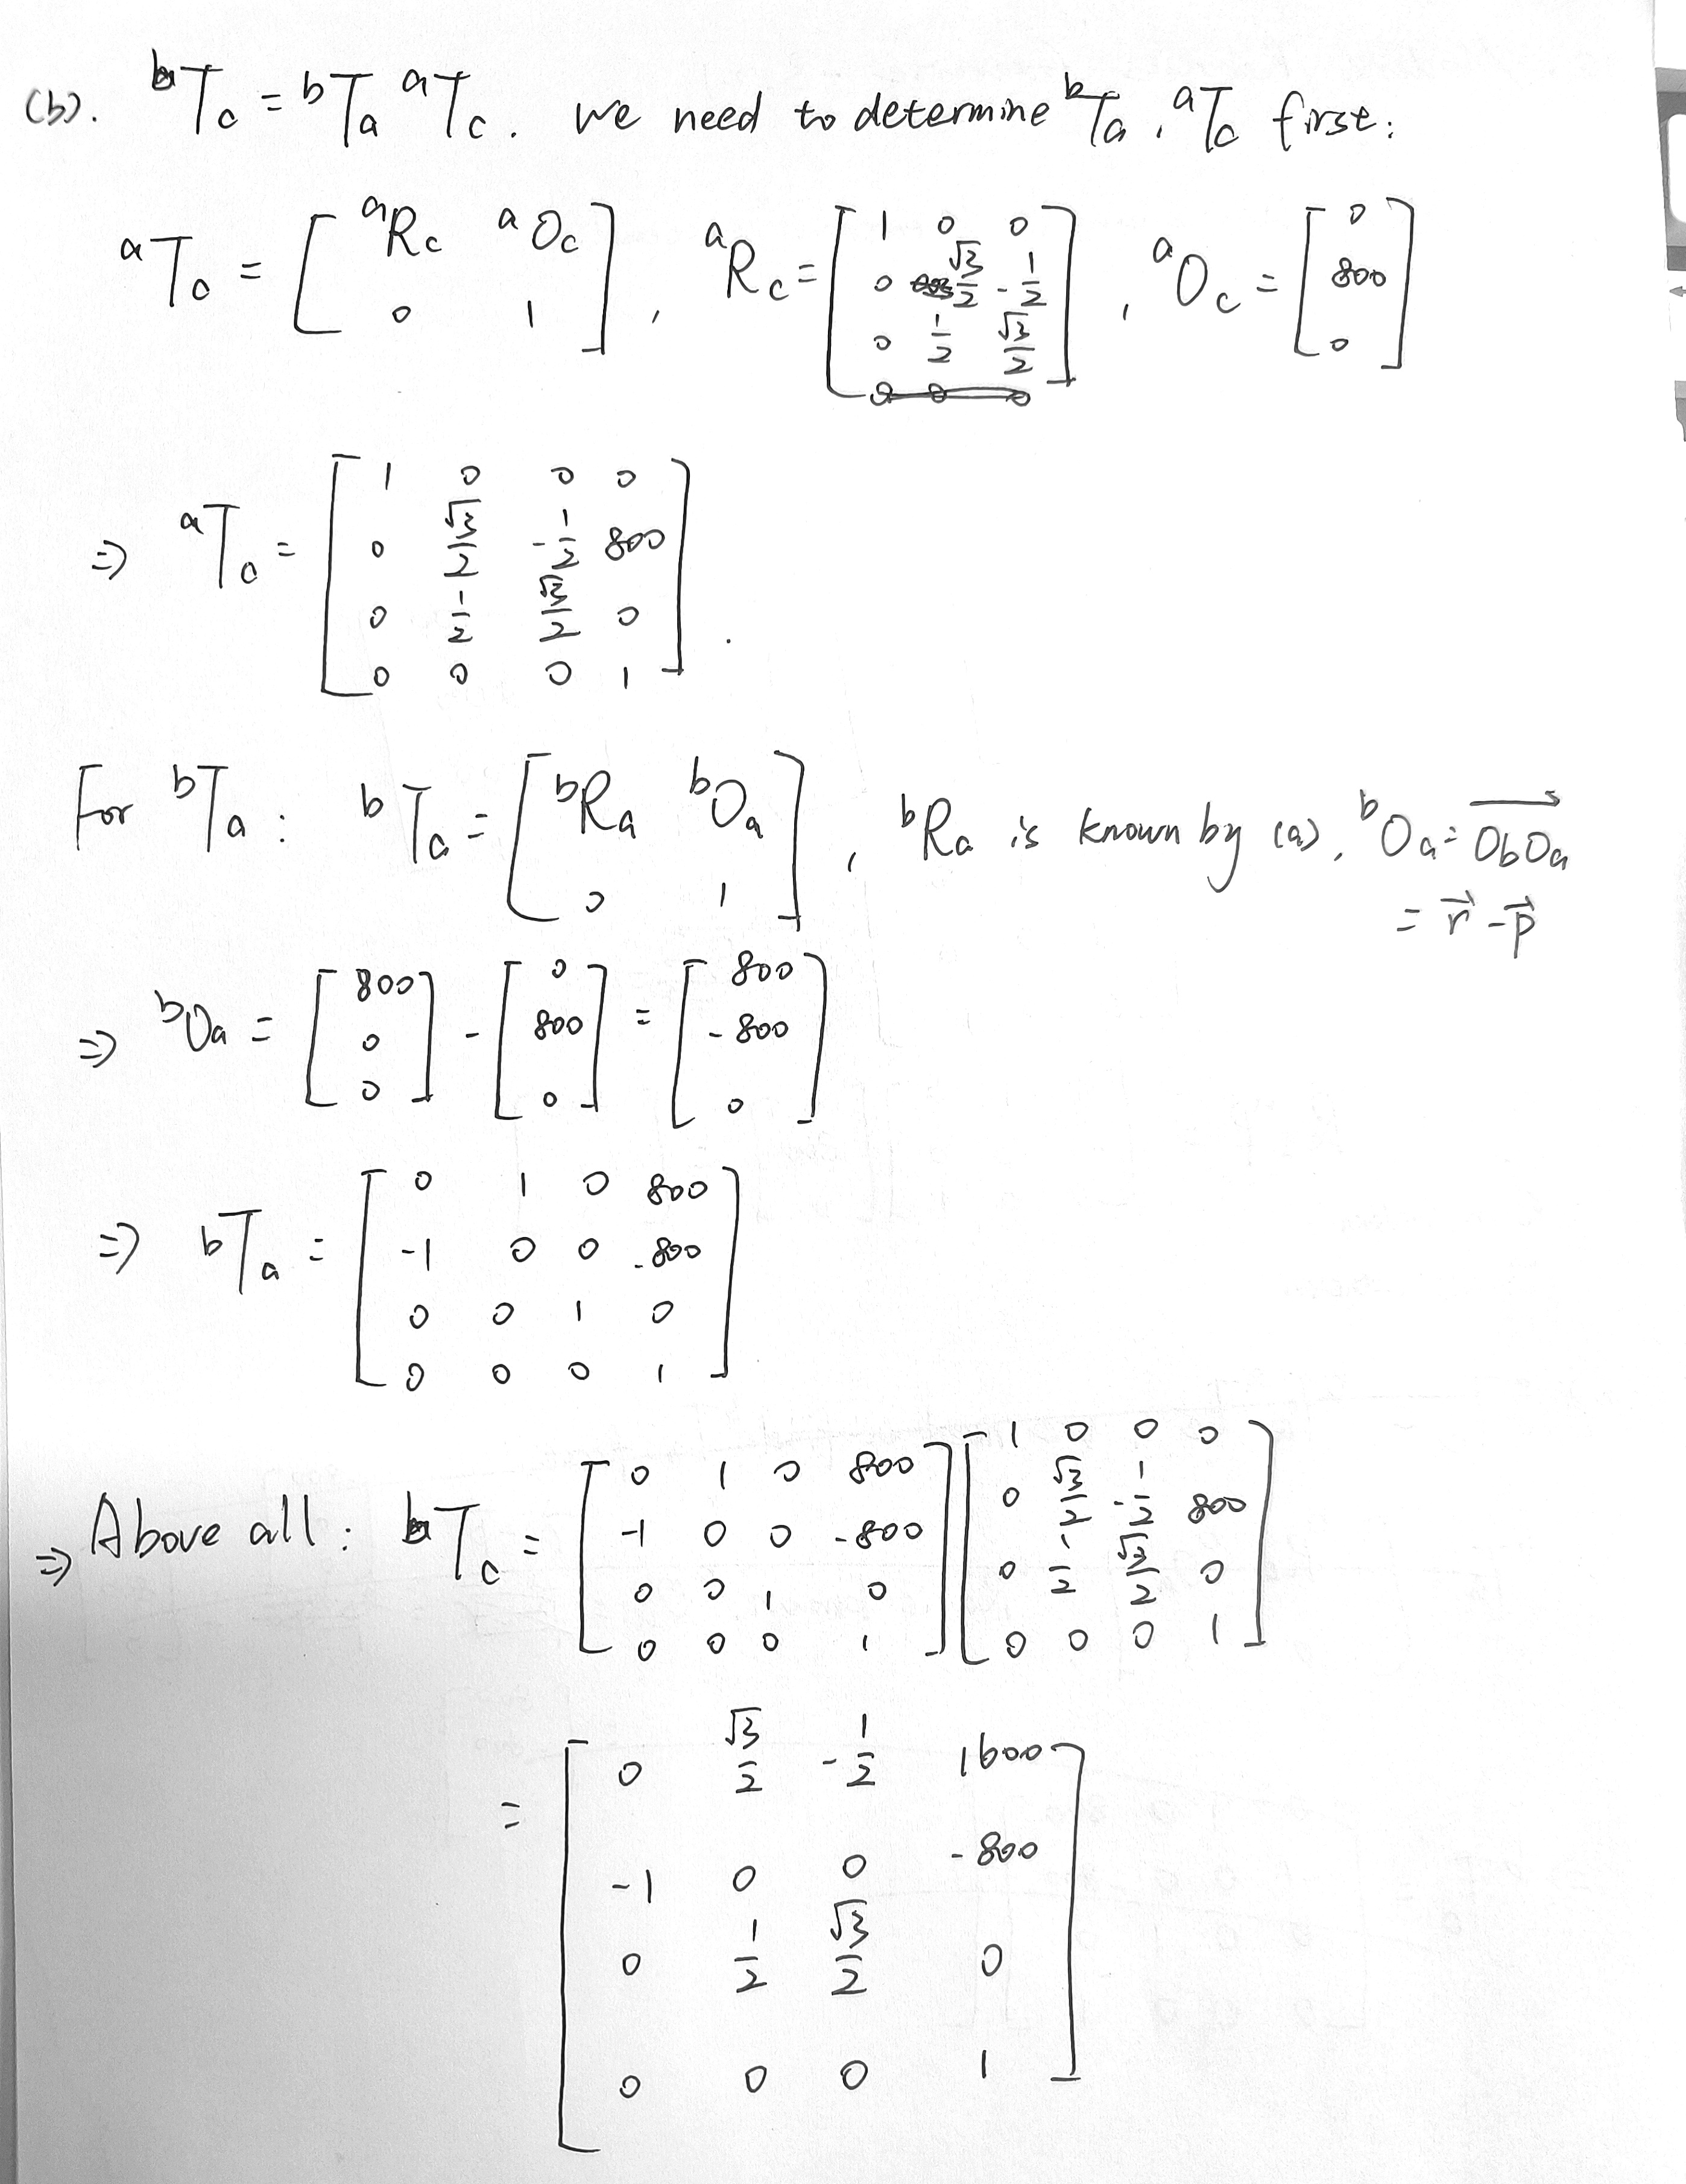 (b). ᵇT_c = ᵇT_a ᵃT_c. We need to determine ᵇT_a, ᵃT_c first:
ᵃT_c = [ ᵃR_c ᵃO_c ; 0 1 ], ᵃR_c = [ 1 0 0 ; 0 √3/2 -1/2 ; 0 1/2 √3/2 ], ᵃO_c = [ 0 ; 800 ; 0 ]
⇒ ᵃT_c = [ 1 0 0 0 ; 0 √3/2 -1/2 800 ; 0 1/2 √3/2 0 ; 0 0 0 1 ].
For ᵇT_a: ᵇT_a = [ ᵇR_a ᵇO_a ; 0 1 ], ᵇR_a is known by (a), ᵇO_a = \overrightarrow{O_bO_a}
= \vec{r} - \vec{p}
⇒ ᵇO_a = [ 800 ; 0 ; 0 ] - [ 0 ; 800 ; 0 ] = [ 800 ; -800 ; 0 ]
⇒ ᵇT_a = [ 0 1 0 800 ; -1 0 0 -800 ; 0 0 1 0 ; 0 0 0 1 ]
⇒ Above all: ᵇT_c = [ 0 1 0 800 ; -1 0 0 -800 ; 0 0 1 0 ; 0 0 0 1 ] [ 1 0 0 0 ; 0 √3/2 -1/2 800 ; 0 1/2 √3/2 0 ; 0 0 0 1 ]
= [ 0 √3/2 -1/2 1600 ; -1 0 0 -800 ; 0 1/2 √3/2 0 ; 0 0 0 1 ]